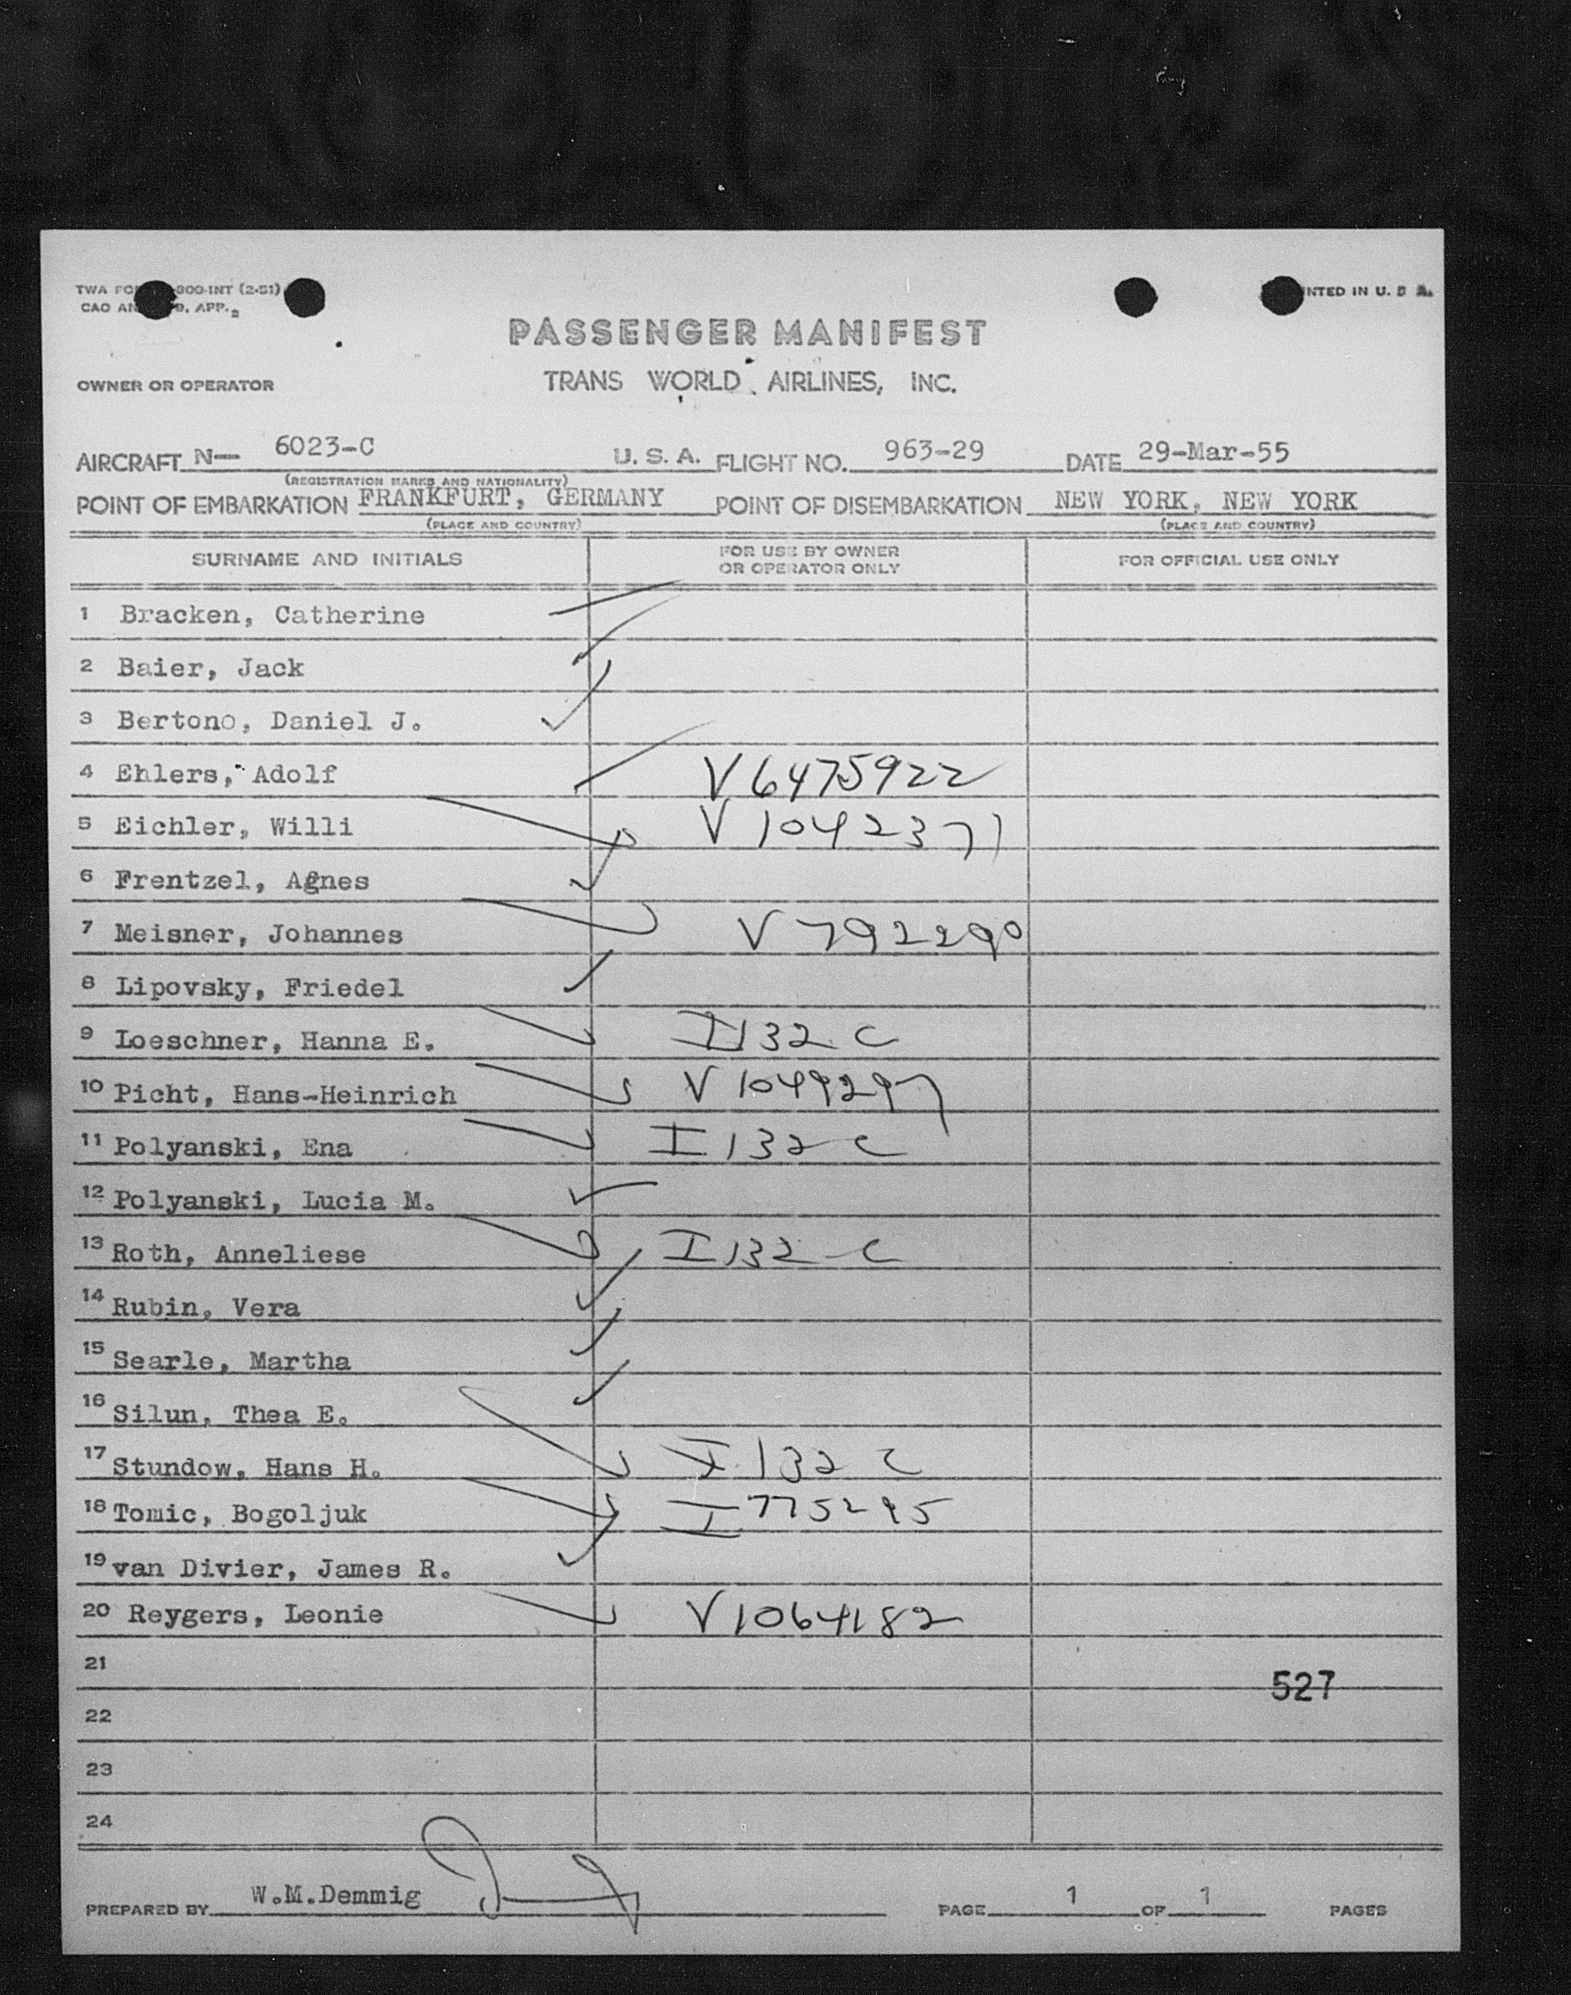 TWA FO 800-INT (2-51)
CAO AN 9, APP. 2
PRINTED IN U. S. A.
PASSENGER MANIFEST
OWNER OR OPERATOR TRANS WORLD AIRLINES, INC.
AIRCRAFT N— 6023-C U. S. A. FLIGHT NO. 963-29 DATE 29-Mar-55
(REGISTRATION MARKS AND NATIONALITY)
POINT OF EMBARKATION FRANKFURT, GERMANY POINT OF DISEMBARKATION NEW YORK, NEW YORK
(PLACE AND COUNTRY) (PLACE AND COUNTRY)
SURNAME AND INITIALS FOR USE BY OWNER OR OPERATOR ONLY FOR OFFICIAL USE ONLY
1 Bracken, Catherine
2 Baier, Jack
3 Bertono, Daniel J.
4 Ehlers, Adolf V 6475922
5 Eichler, Willi V 1042377
6 Frentzel, Agnes
7 Meisner, Johannes V 792290
8 Lipovsky, Friedel
9 Loeschner, Hanna E. I 132 C
10 Picht, Hans-Heinrich V 1049297
11 Polyanski, Ena I 132 C
12 Polyanski, Lucia M.
13 Roth, Anneliese I 132 C
14 Rubin, Vera
15 Searle, Martha
16 Silun, Thea E.
17 Stundow, Hans H. I 132 C
18 Tomic, Bogoljuk I 775295
19 van Divier, James R.
20 Reygers, Leonie V 1064182
21
527
22
23
24
PREPARED BY W.M.Demmig PAGE 1 OF 1 PAGES